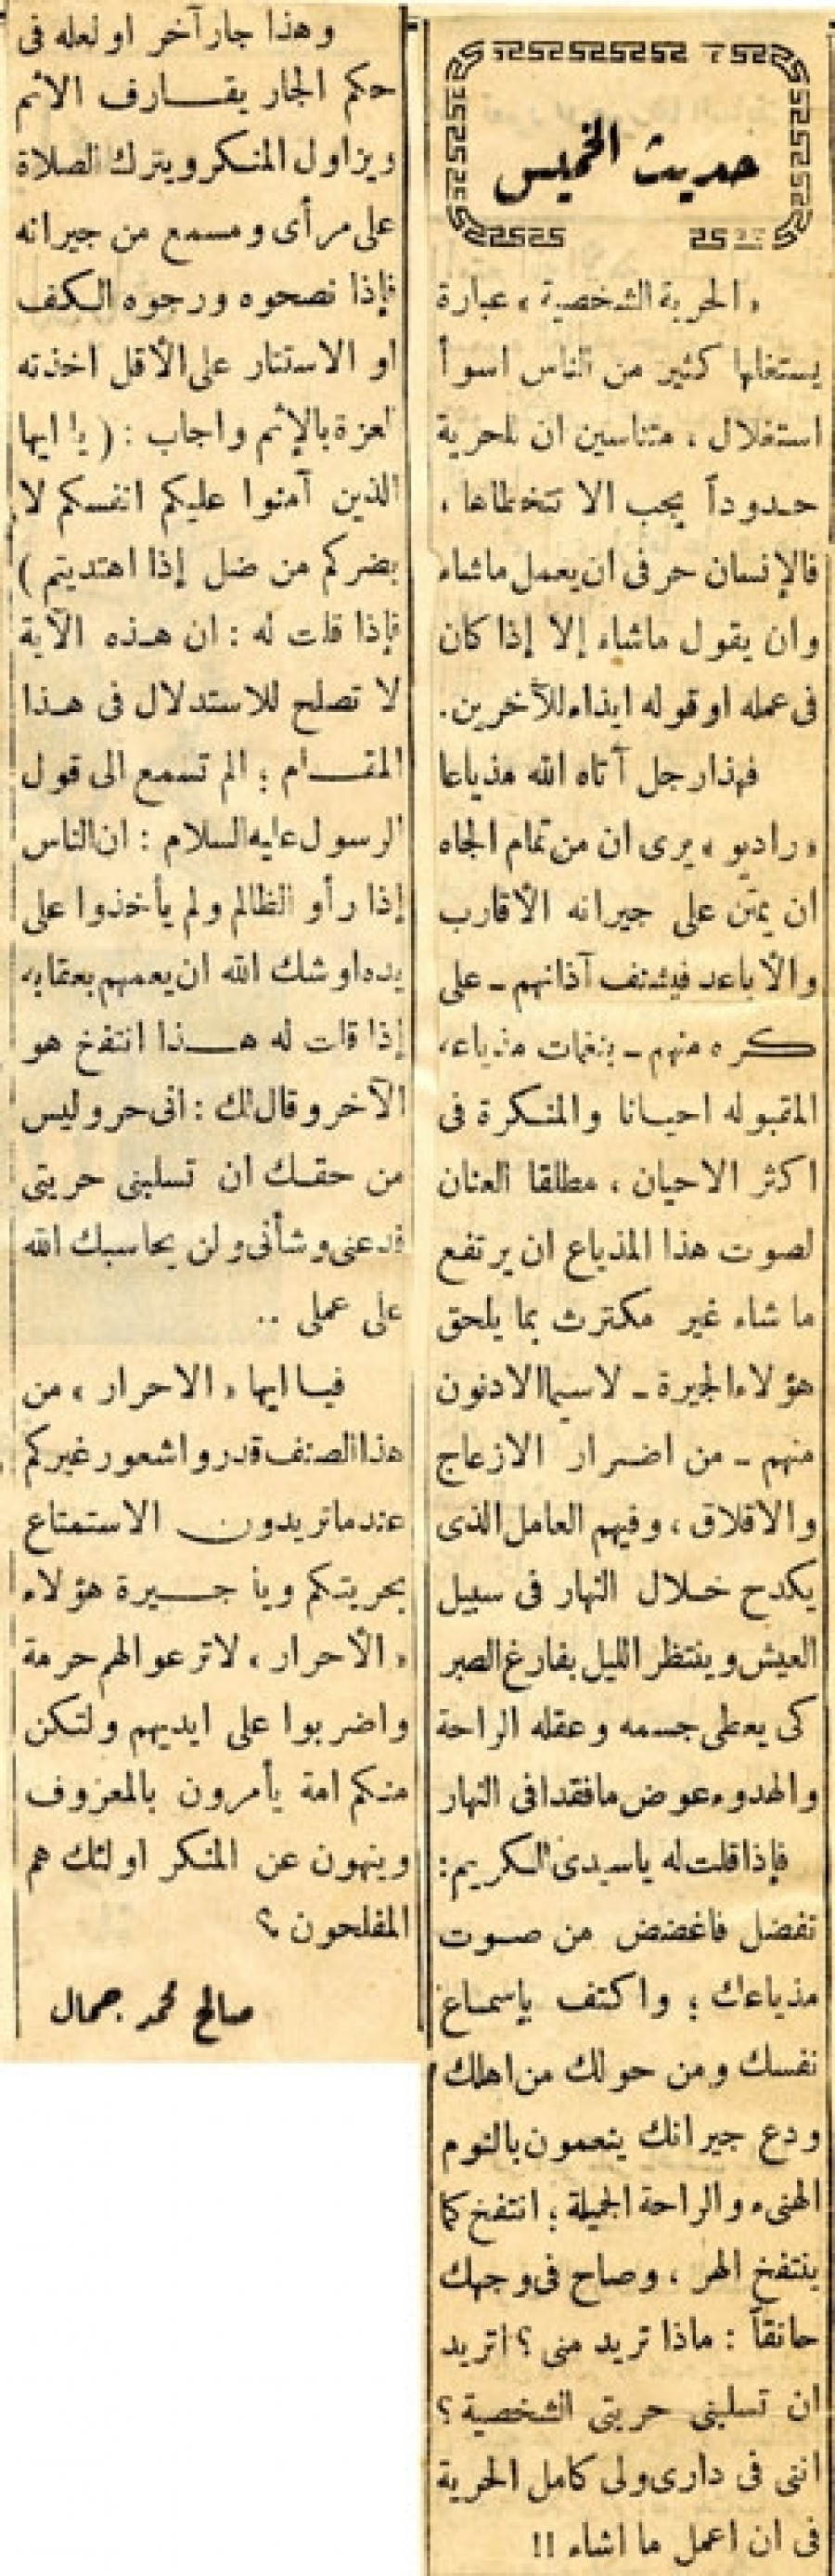 حديث الخميس
«الحرية الشخصية» عبارة
يستغلها كثير من الناس اسوأ
استغلال ، متناسين ان للحرية
حدوداً يجب الا تتخطاها ،
فالإنسان حر فى ان يعمل ماشاء
وان يقول ماشاء إلا إذا كان
فى عمله او قوله ايذاء للآخرين.
فهذا رجل آتاه الله مذياعا
«راديو» يرى ان من تمام الجاه
ان يمتن على جيرانه الأقارب
والأباعد فيشنف آذانهم ـ على
كره منهم ـ بنغمات مذياعه
المقبوله احيانا والمنكرة فى
اكثر الاحيان ، مطلقا العنان
لصوت هذا المذياع ان يرتفع
ما شاء غير مكترث بما يلحق
هؤلاء الجيرة ـ لاسيما الادنون
منهم ـ من اضرار الازعاج
والاقلاق ، وفيهم العامل الذى
يكدح خلال النهار فى سبيل
العيش وينتظر الليل بفارغ الصبر
كى يعطى جسمه وعقله الراحة
والهدوء عوض مافقدا فى النهار
فإذا قلت له ياسيدى الكريم:
تفضل فاغضض من صوت
مذياعك ؛ واكتف بإسماع
نفسك ومن حولك من اهلك
ودع جيرانك ينعمون بالنوم
الهنىء والراحة الجميلة ؛ انتفخ كما
ينتفخ الهر ، وصاح فى وجهك
حانقاً : ماذا تريد منى ؟ اتريد
ان تسلبنى حريتى الشخصية ؟
اننى فى دارى ولى كامل الحرية
فى ان اعمل ما اشاء !!
وهذا جار آخر او لعله فى
حكم الجار يقارف الاثم
ويزاول المنكر ويترك الصلاة
على مرأى ومسمع من جيرانه
فإذا نصحوه ورجوه الكف
او الاستتار على الأقل اخذته
العزة بالإثم واجاب : ( يا ايها
الذين آمنوا عليكم انفسكم لا
يضركم من ضل إذا اهتديتم )
فإذا قلت له : ان هذه الآية
لا تصلح للاستدلال فى هذا
المقام ؛ الم تسمع الى قول
الرسول عليه السلام : ان الناس
إذا رأو الظالم ولم يأخذوا على
يده اوشك الله ان يعمهم بعقابه
إذا قلت له هذا انتفخ هو
الآخر وقال لك : انى حر وليس
من حقك ان تسلبنى حريتى
فدعنى وشأنى ولن يحاسبك الله
على عملى ..
فيا ايها «الاحرار» من
هذا الصنف قدروا شعور غيركم
عندما تريدون الاستمتاع
بحريتكم ويا جيرة هؤلاء
«الأحرار» لا ترعوا لهم حرمة
واضربوا على ايديهم ولتكن
منكم امة يأمرون بالمعروف
وينهون عن المنكر اولئك هم
المفلحون ؟
صالح محمد جمال